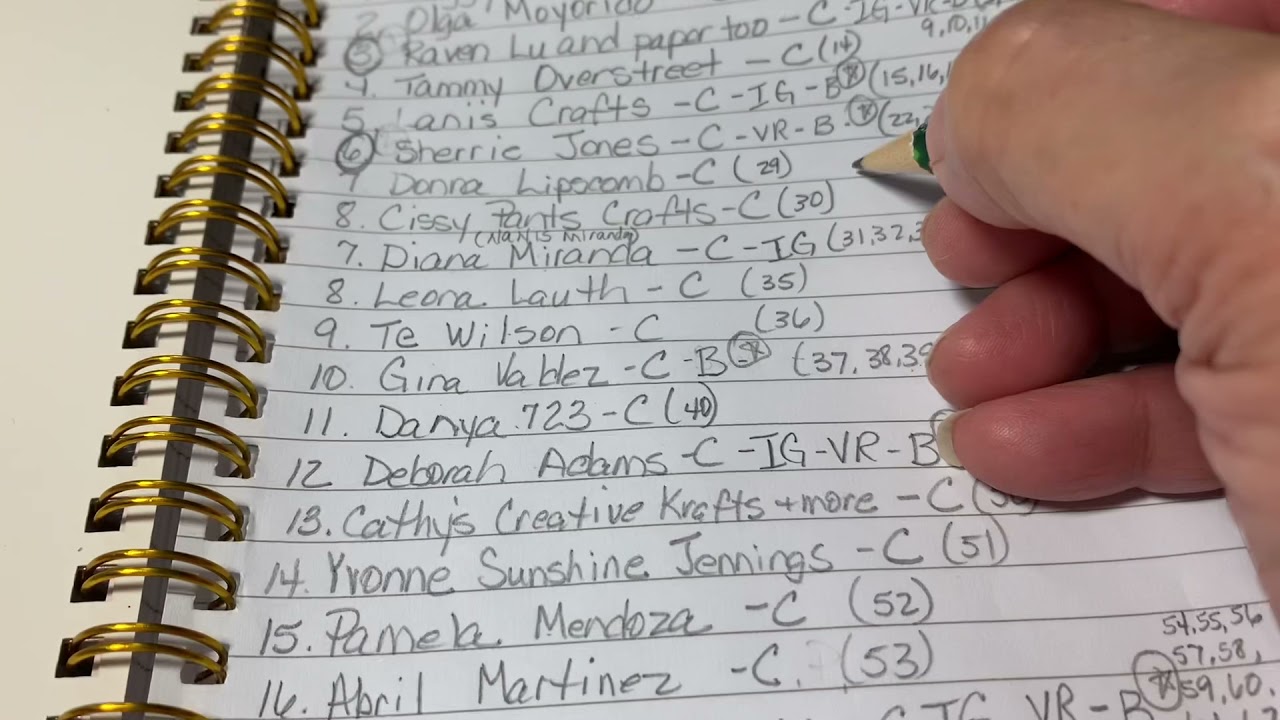 2. Olga Moyorido
3 Raven Lu and paper too - C - IG - VR -
9, 10, 11
4. Tammy Overstreet - C (14)
5. Lanis Crafts - C - IG - B (15, 16,
6 Sherrie Jones - C - VR - B - (22,
7 Donna Lipscomb - C (29)
8. Cissy Pants Crafts - C (30)
(Nanis Miranda)
7. Diana Miranda - C - IG (31, 32, 3
8. Leona Lauth - C (35)
9. Te Wilson - C (36)
10. Gina Valdez - C - B (37, 38, 39
11. Danya 723 - C (40)
12 Deborah Adams - C - IG - VR - B
13. Cathy's Creative Krafts + more - C
14. Yvonne Sunshine Jennings - C (51)
15. Pamela Mendoza - C (52)
16. Abril Martinez - C. (53)
54, 55, 56
57, 58,
59, 60,
C IG VR - B